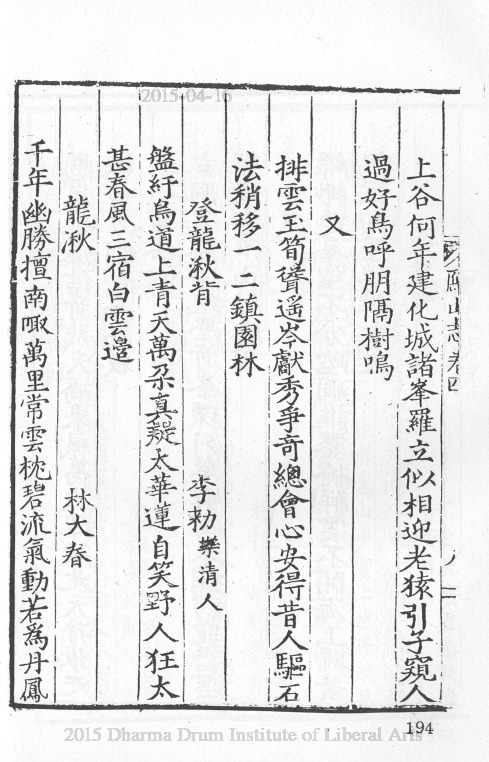 2015-04-16
鴈山志卷四
上谷何年建化城諸峯羅立似相迎老猿引子窺人
過好鳥呼朋隔樹鳴
又
排雲玉筍聳遥岑獻秀爭奇總會心安得昔人驅石
法稍移一二鎮園林
登龍湫背 李勑 樂清人
盤紆鳥道上青天萬朶真疑太華蓮自笑野人狂太
甚春風三宿白雲邊
龍湫 林大春
千年幽勝擅南陬萬里常雲枕碧流氣動若爲丹鳳
194
2015 Dharma Drum Institute of Liberal Arts